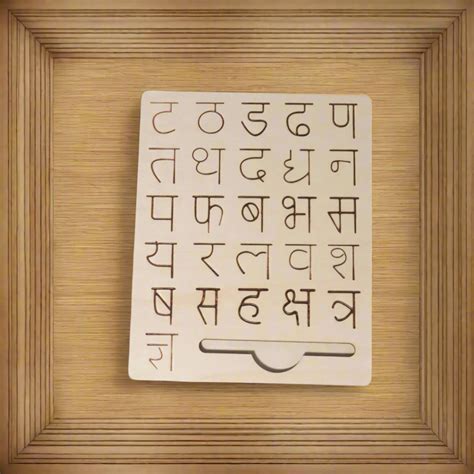 ट ठ ड ढ ण
त थ द ध न
प फ ब भ म
य र ल व श
ष स ह क्ष त्र
ज्ञ